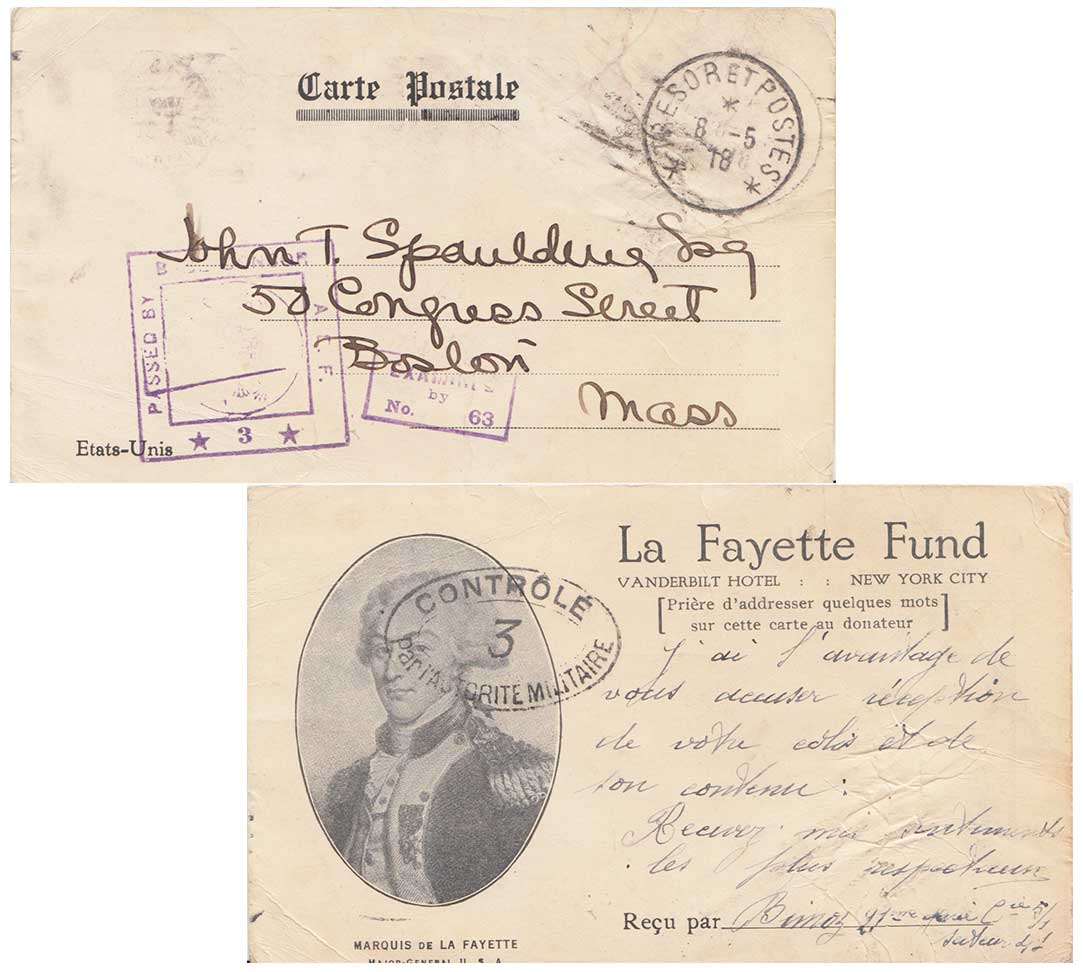 Carte Postale
TRESOR ET POSTES
8 - 5
18
John T. Spaulding Esq
50 Congress Street
Boston
Mass
PASSED BY
A. E. F.
3
EXAMINED
by
No. 63
Etats-Unis
La Fayette Fund
VANDERBILT HOTEL : : NEW YORK CITY
[Prière d'addresser quelques mots
sur cette carte au donateur]
CONTRÔLÉ
3
par l'AUTORITE MILITAIRE
J'ai l'avantage de
vous accuser réception
de votre colis et de
son contenu :
Recevez mes sentiments
les plus respectueux
Reçu par
génie Cie
MARQUIS DE LA FAYETTE
MAJOR-GENERAL U. S. A.